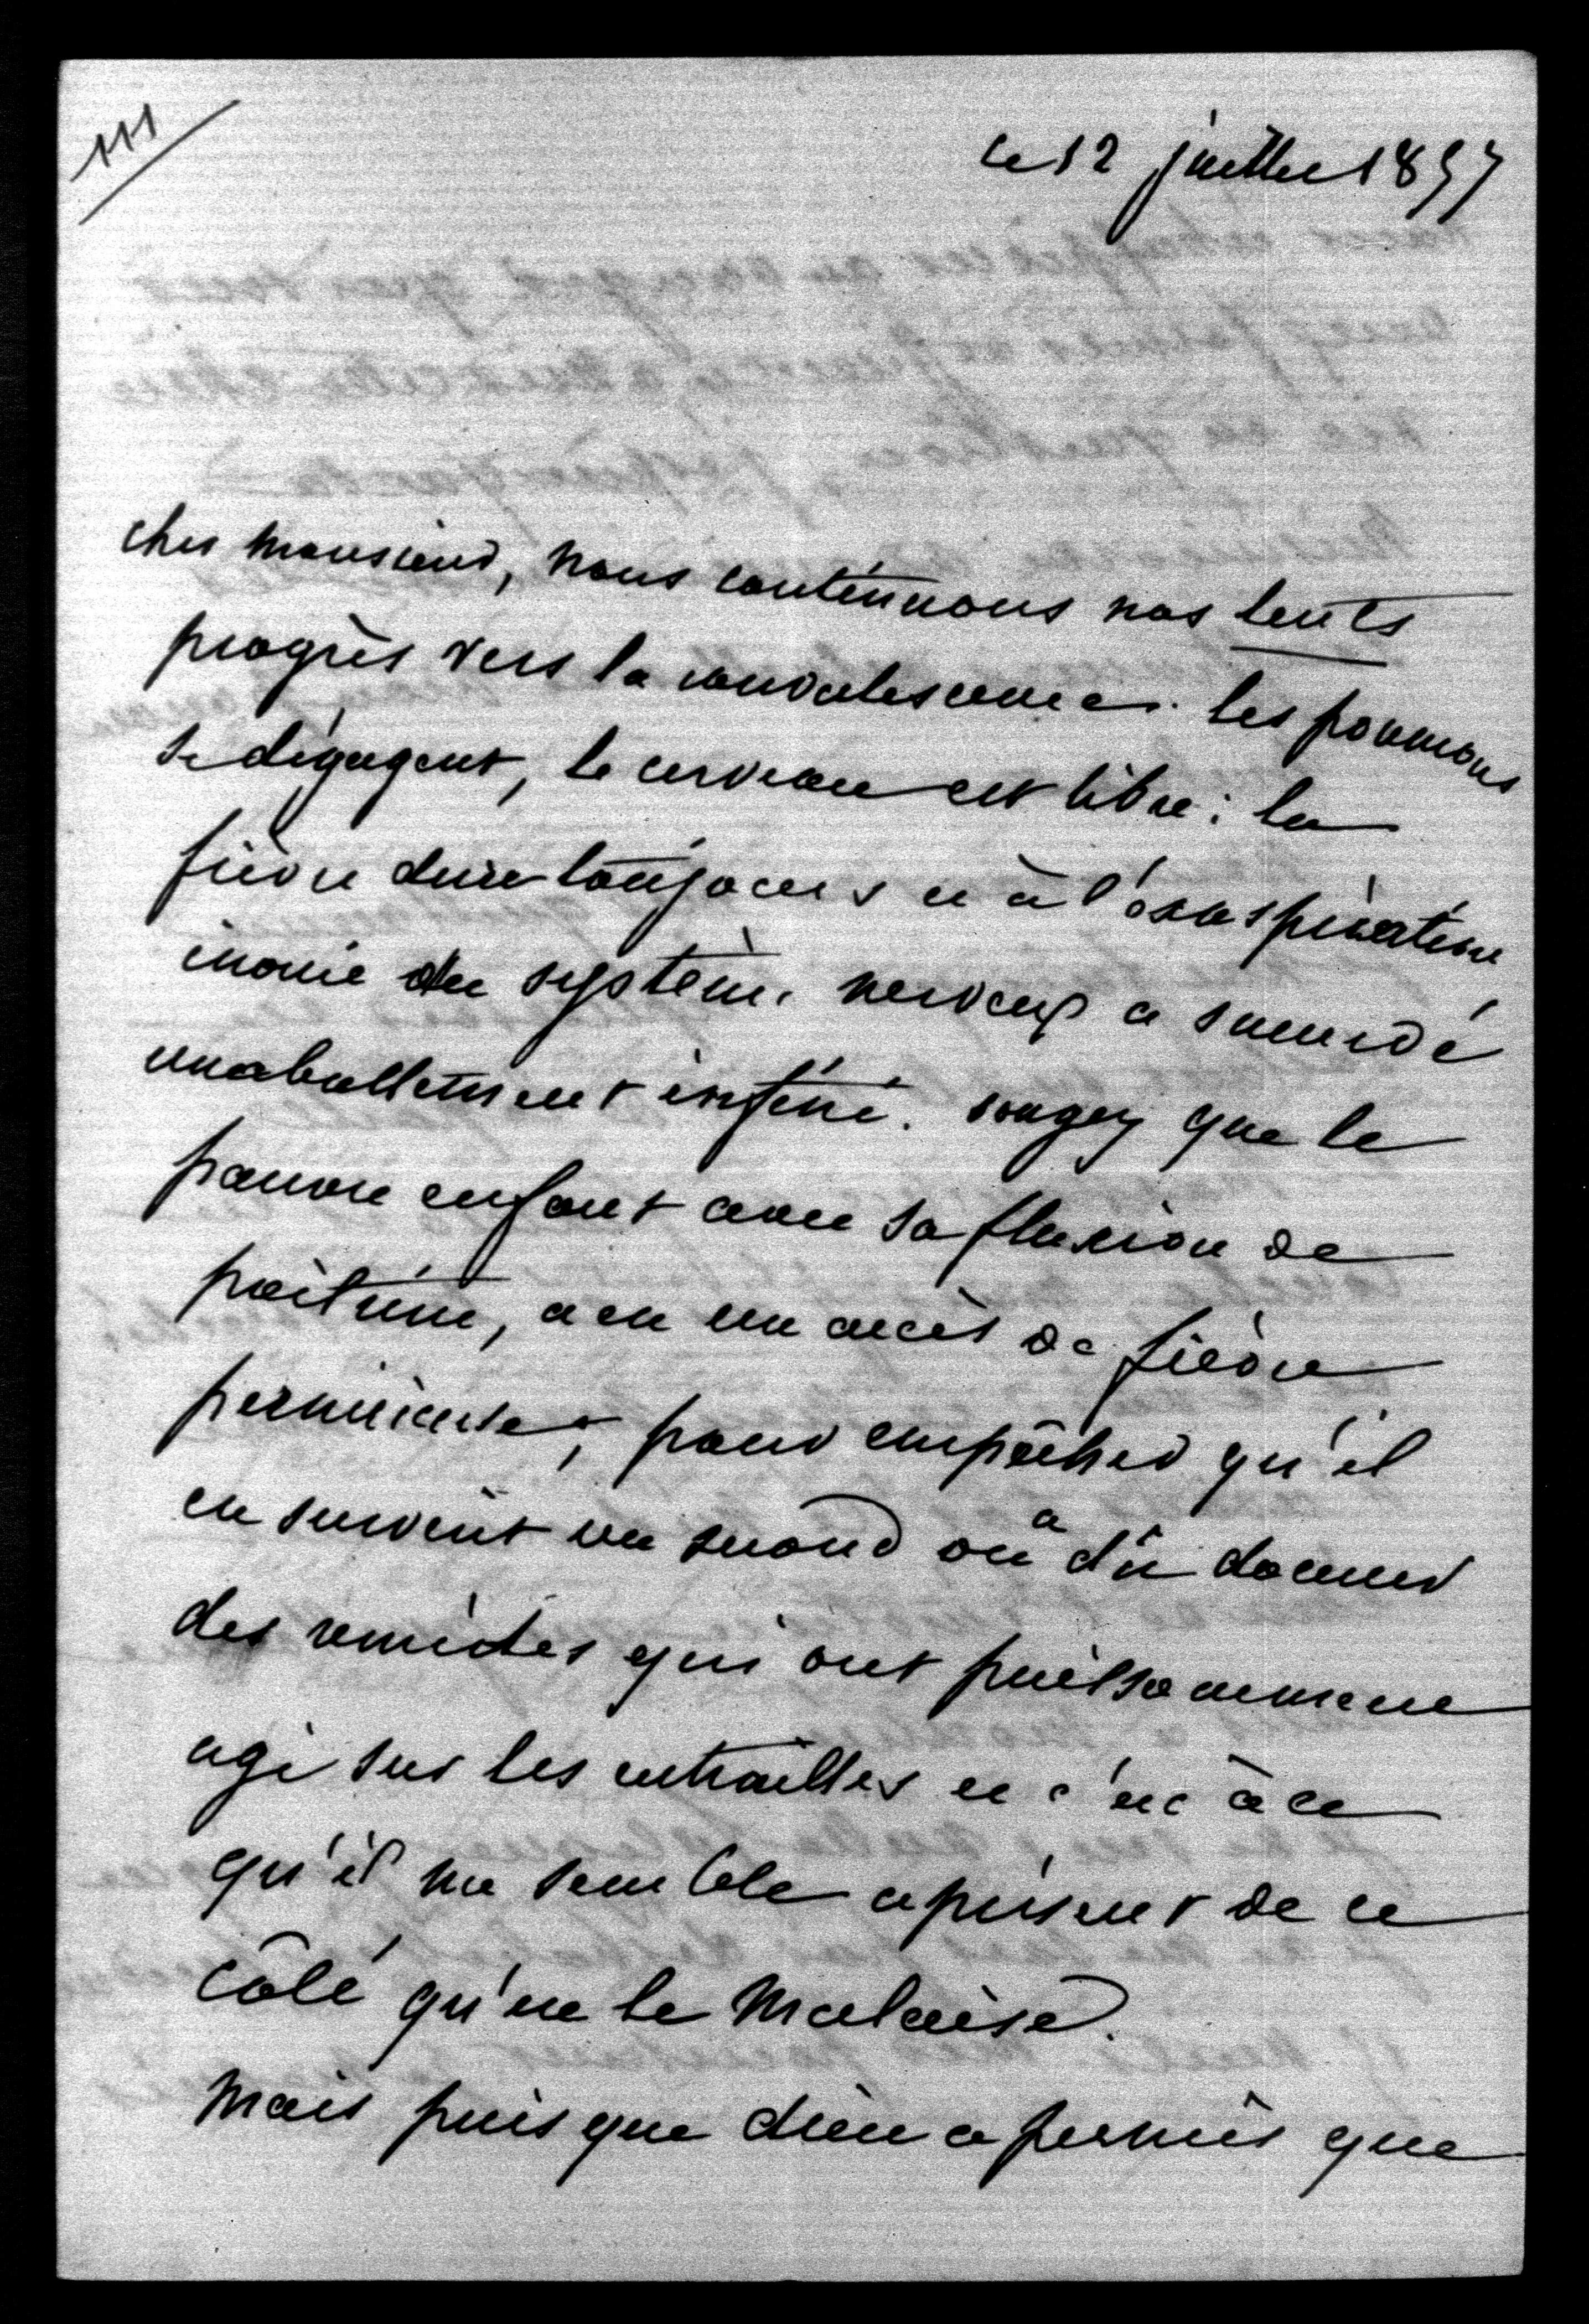 111
ce 12 juillet 1857
cher monsieur, nous continuons nos lents
progrès vers la convalescence. les poumons
se dégagent, le cerveau est libre; la
fièvre dure toujours et à l'exaspération
inouie du système nerveux a succédé
un abattement infini. songez que le
pauvre enfant avec sa fluxion de
poitrine, a eu un accès de fièvre
pernicieuse; pour empêcher qu'il
en survint un second on a dû donner
des remèdes qui ont puissamment
agi sur les entrailles et c'est à ce
qu'il me semble a présent de ce
côté qu'est le malaise.
mais puisque dieu a permis que